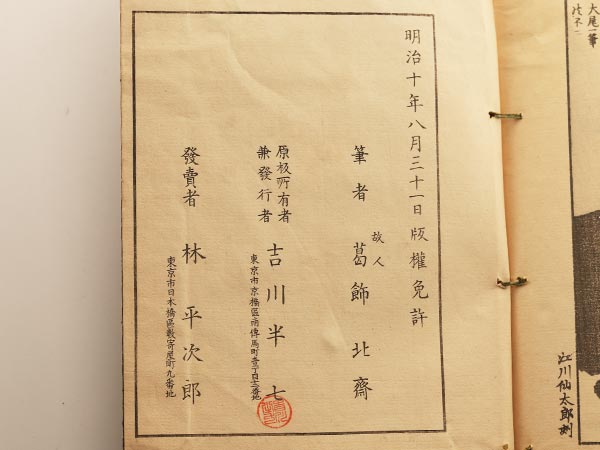 大尾一筆
江川仙太郎刻
明治十年八月三十一日版權免許
故人
筆者 葛飾北齋
原板所有者
兼發行者
吉川半七
東京市京橋區南傳馬町壹丁目十二番地
發賣者 林平次郎
東京市日本橋區數寄屋町九番地